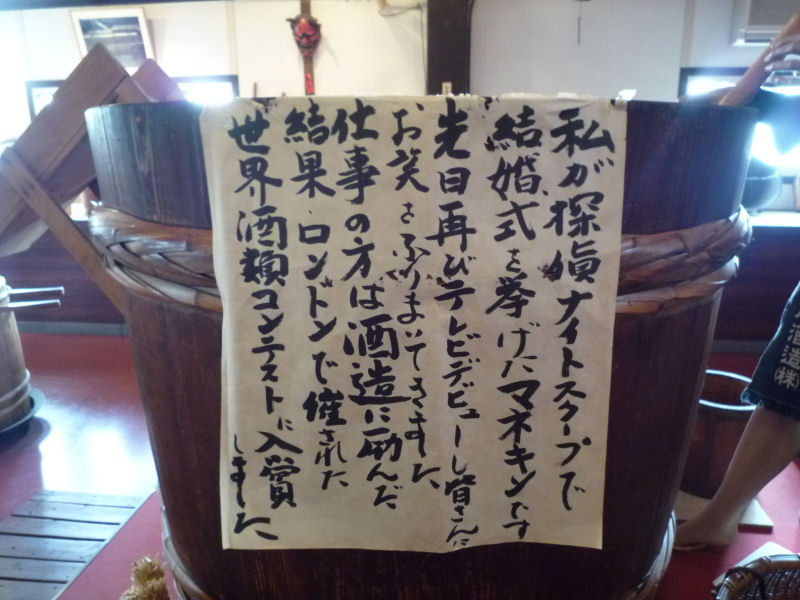 私が探偵ナイトスクープで
結婚式を挙げたマネキンです
先日再びテレビデビューし皆さんに
お笑をふりまいてきました
仕事の方は酒造に励んだ
結果ロンドンで催された
世界酒類コンテストに入賞
しました
酒造㈱